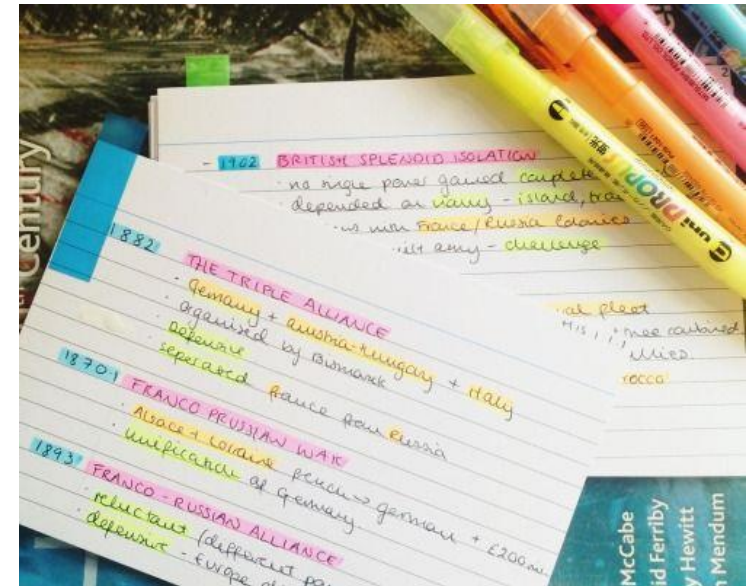 Century
- 1902 BRITISH SPLENDID ISOLATION
· no single power gained complete
· depended on navy - island, tra
with France/Russia colonies
army - challenge
al fleet
combined
Allies
rocco
1882
THE TRIPLE ALLIANCE
· Germany + Austria-Hungary + Italy
· organised by Bismark
· Defensive
· seperated France from Russia
1870-1 FRANCO PRUSSIAN WAR
· Alsace + Lorraine french → german + £200m
· unification of Germany
1893 FRANCO-RUSSIAN ALLIANCE
· reluctant (different pa
· defensive - Europe
uni PROPUS
McCabe
d Ferriby
y Hewitt
n Mendum